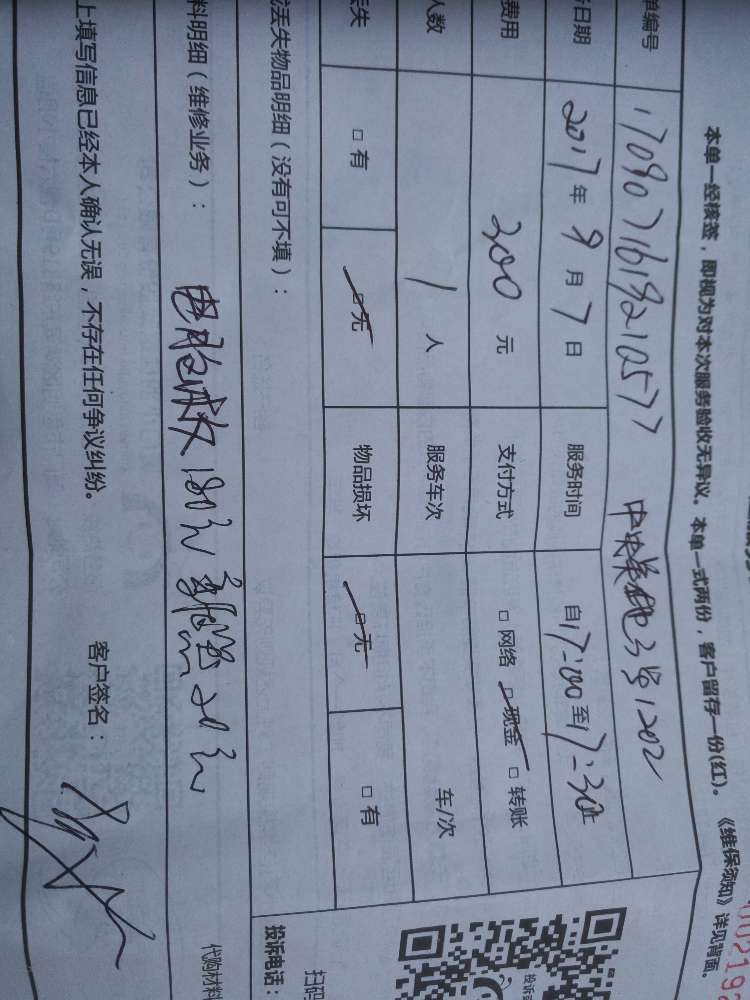 00219
本单一经核签，即视为对本次服务验收无异议。本单一式两份，客户留存一份(红)。《维保须知》详见背面。
单编号 中央美地3号1202
日期 2017年9月7日 服务时间 自17:00至17:30止
费用 300元 支付方式 □网络 □现金 □转账
人数 1人 服务车次 车/次
丢失 □有 □无 物品损坏 □无 □有
丢失物品明细（没有可不填）：
料明细（维修业务）： 180元 20元
上填写信息已经本人确认无误，不存在任何争议纠纷。 客户签名：
投诉
扫码
投诉电话：
代购材料